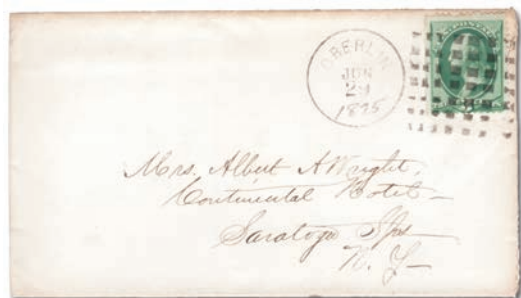 OBERLIN
JUN
29
1875
Mrs. Albert A Wright,
Continental Hotel—
Saratoga Spr
N. Y—